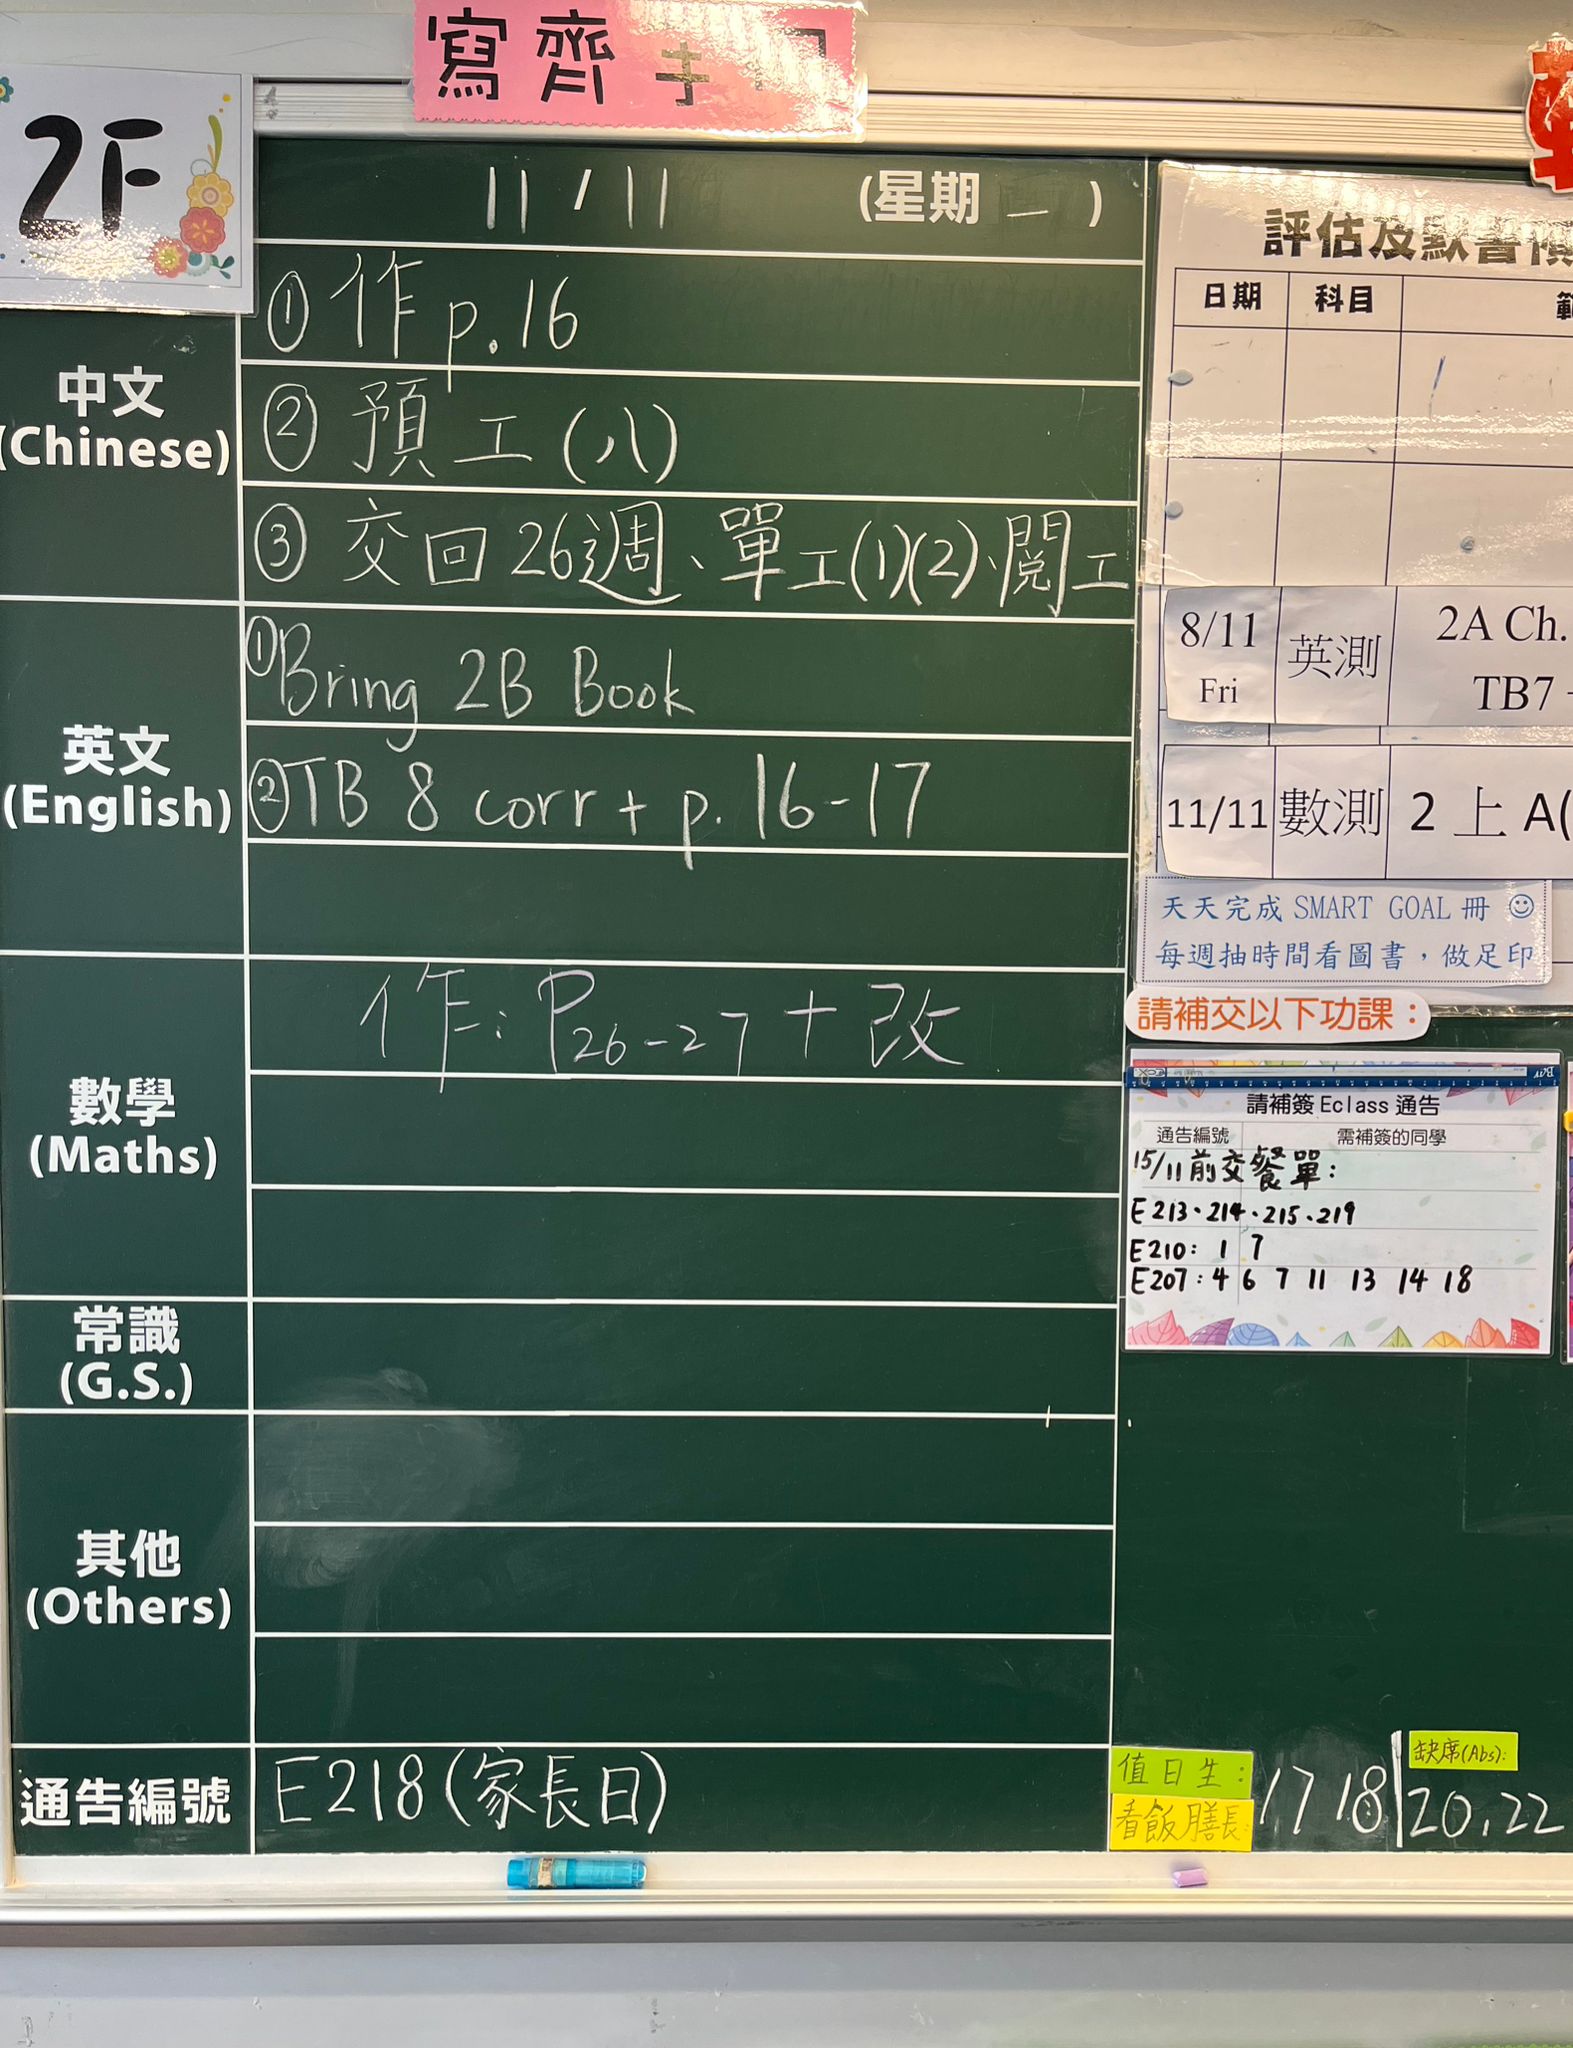 寫齊手
2F
11/11 (星期一)
中文
(Chinese)
① 作 p.16
② 預工(八)
③ 交回26週、單工(1)(2)、閱工
英文
(English)
① Bring 2B Book
② TB 8 corr + p. 16-17
數學
(Maths)
作: P26-27 + 改
常識
(G.S.)
其他
(Others)
通告編號
E218(家長日)
評估及默書
日期 科目
8/11 Fri 英測 2A Ch.
TB7
11/11 數測 2 上 A(
天天完成 SMART GOAL 冊 ☺
每週抽時間看圖書，做足印
請補交以下功課：
請補簽 Eclass 通告
通告編號 需補簽的同學
15/11前交餐單:
E213、214、215、219
E210: 1 7
E207: 4 6 7 11 13 14 18
值日生:
看飯膳長:
17 18
缺席(Abs):
20.22